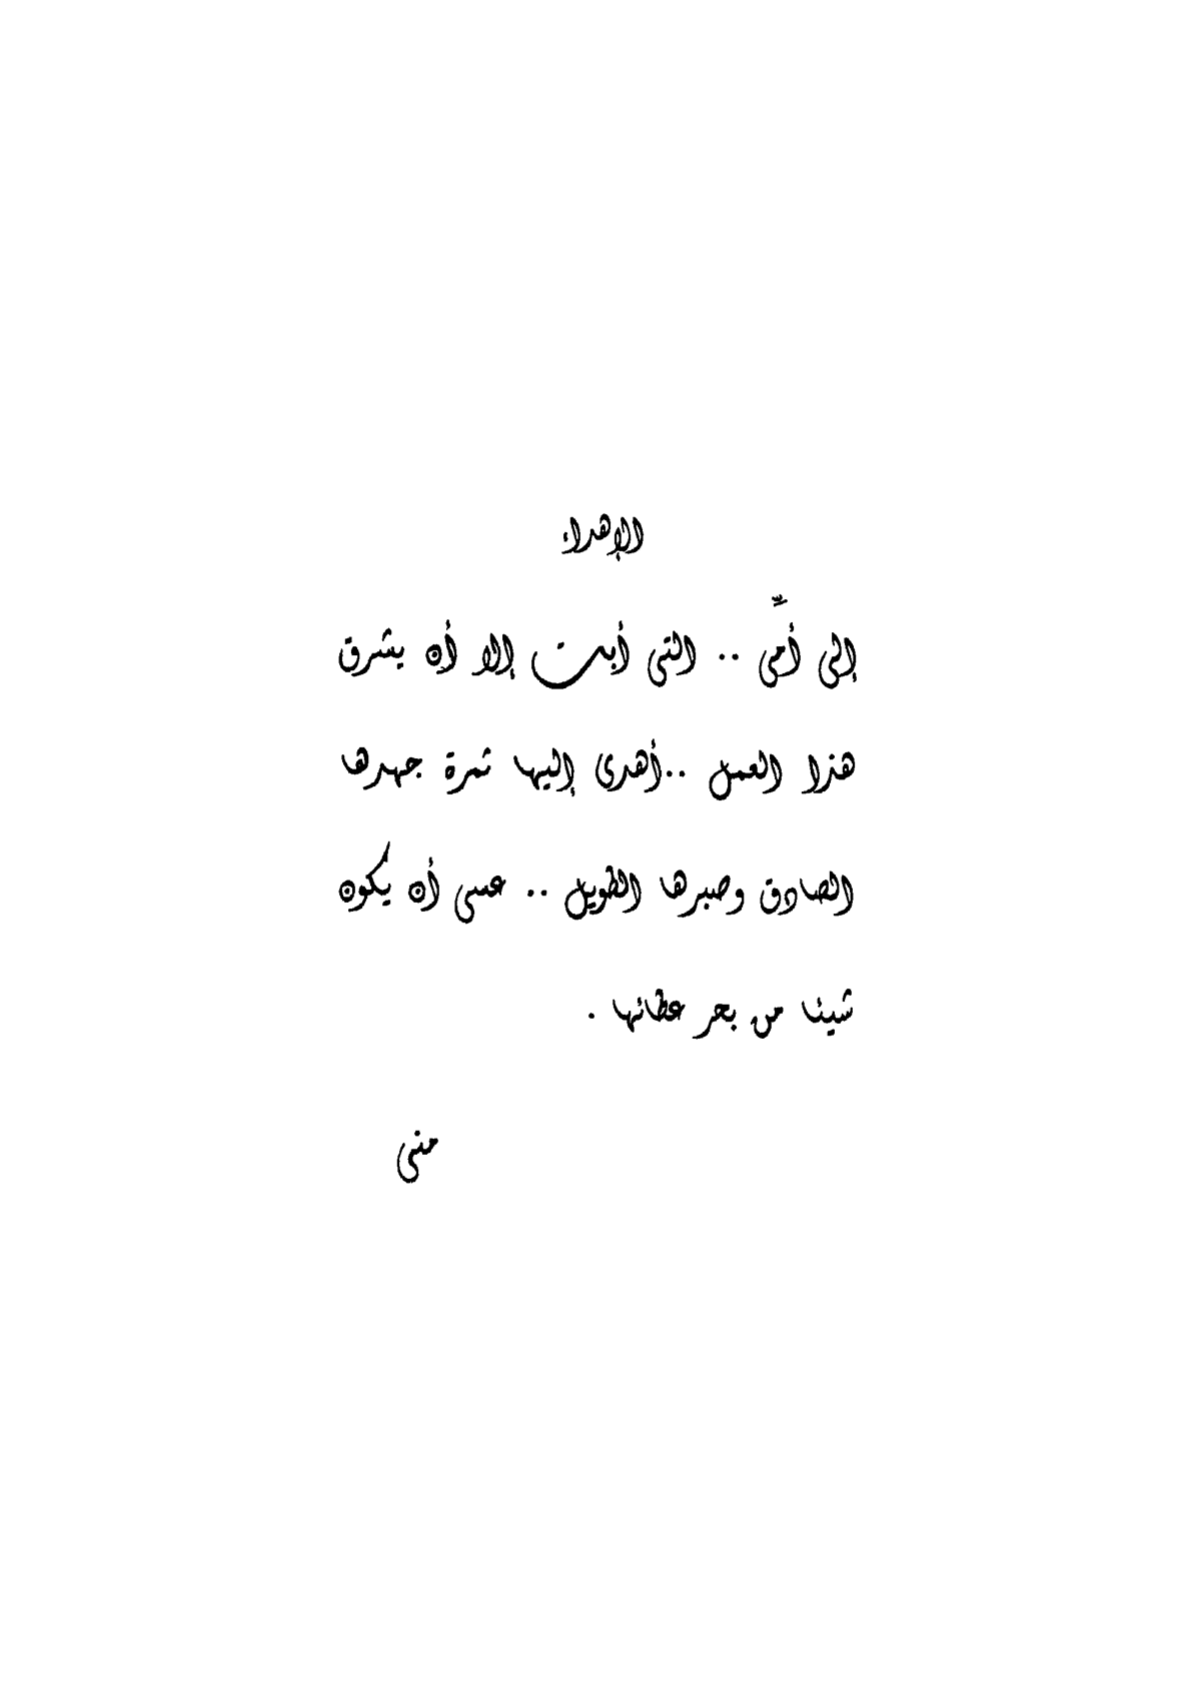 الإهداء
إلى أمِّى .. التى أبت إلا أن يشرق
هذا العمل ..أهدى إليها ثمرة جهدها
الصادق وصبرها الطويل .. عسى أن يكون
شيئا من بحر عطائها .
منى